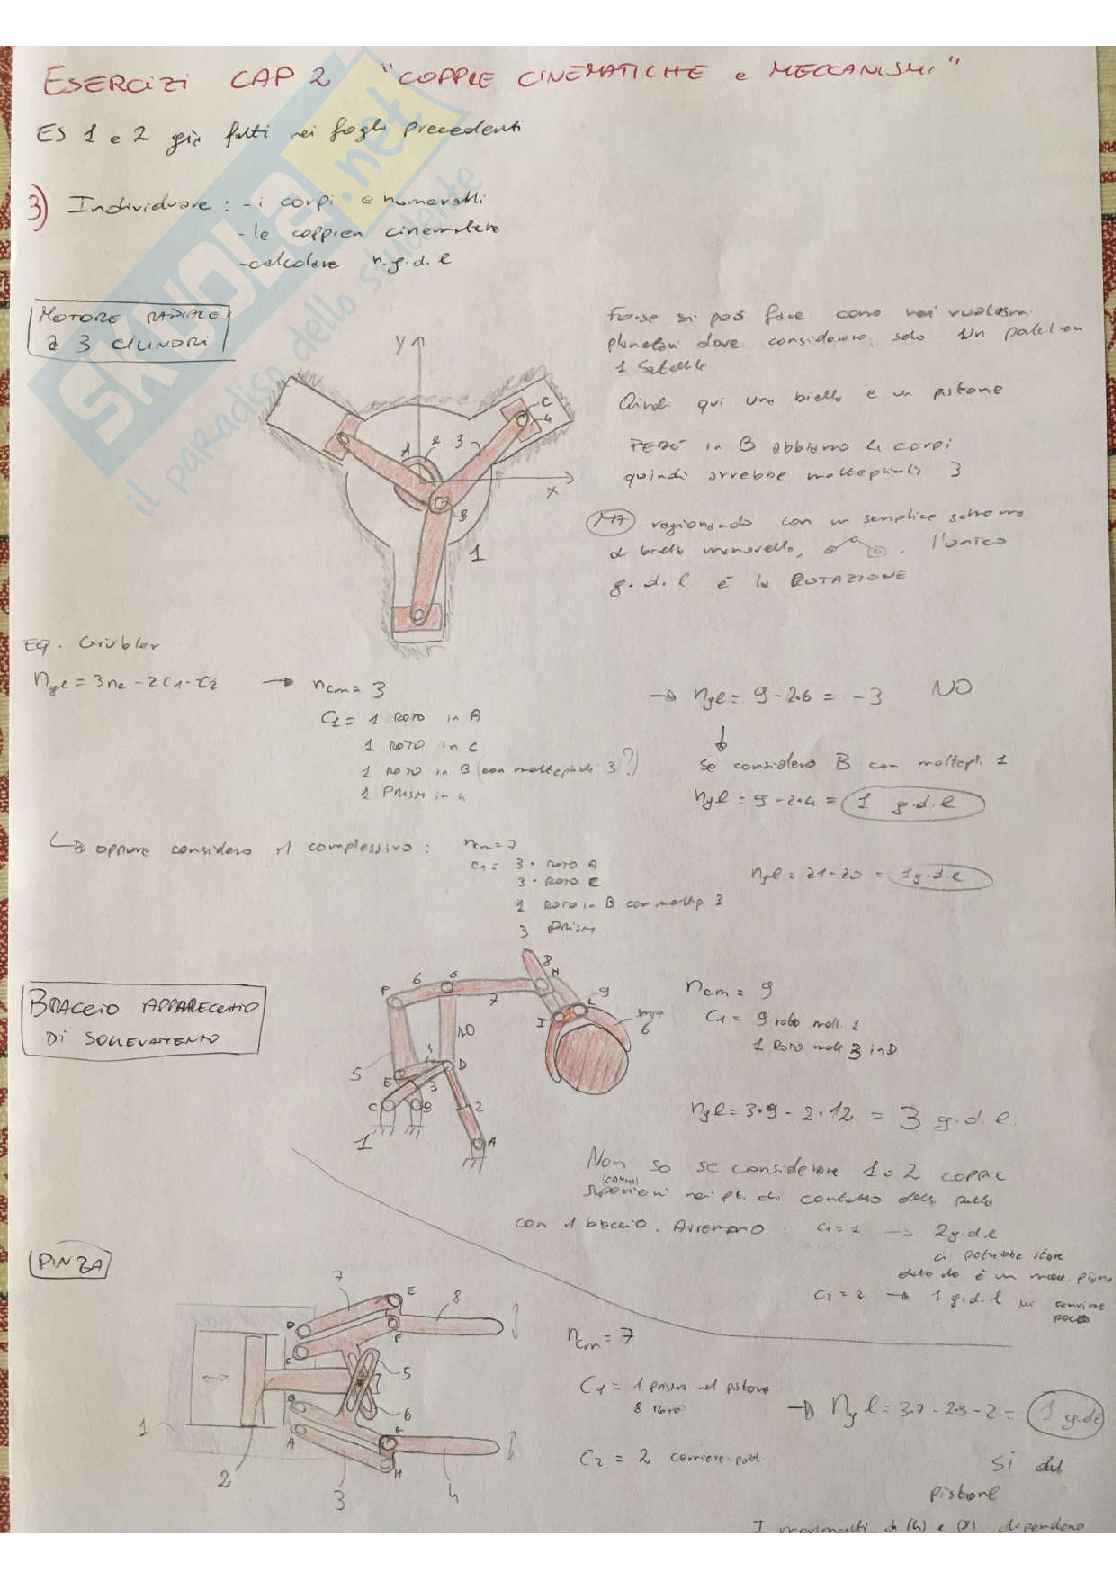 ESERCIZI CAP 2 "COPPIE CINEMATICHE e MECCANISMI"
ES 1 e 2 già fatti nei fogli precedenti
3) Individuare: - i corpi e numerarli
- le coppie cinematiche
- calcolare n.g.d.l
MOTORE RADIALE
a 3 CILINDRI
Forse si può fare come nei ruotismi
planetari dove considero solo un
1 satellite
Quindi qui una biella e un pistone
PERÒ in B abbiamo 4 corpi
quindi avrebbe molteplicità 3
MA ragionando con un semplice schema
di biella manovella, l'unico
g.d.l è la ROTAZIONE
y
x
A
2
3
C
4
B
1
EQ. Grübler
ngl = 3nc - 2C1 - C2 → ncm = 3
C1 = 1 ROTO in A
1 ROTO in C
1 ROTO in B (con molteplicità 3?)
1 PRISM in 4
→ ngl = 9 - 2·6 = -3 NO
↓
Se considero B con moltepl. 1
ngl = 9 - 2·4 = 1 g.d.l
↳ oppure considero il complessivo: ncm = 7
C1 = 3 · ROTO A
3 · ROTO C
1 ROTO in B con moltip 3
3 PRISM
ngl = 21 - 20 = 1 g.d.l
BRACCIO APPARECCHIO
DI SOLLEVAMENTO
F
6
G
7
8
H
9
L
I
6
10
5
E
4
D
3
C
B
2
1
A
ncm = 9
C1 = 9 roto molt. 1
1 ROTO molt 3 in D
ngl = 3·9 - 2·12 = 3 g.d.l.
Non so se considerare 1 o 2 COPPIE
superiori nei pt. di contatto della palla
con 1 braccio. AVREMMO C2 = 1 → 2 g.d.l
ci potrebbe stare
dato che è un mecc. piano
C2 = 2 → 1 g.d.l mi convince
poco
PINZA
7
E
8
D
F
C
5
6
B
A
G
H
1
2
3
4
ncm = 7
C1 = 1 prism nel pistone
8 roto
C2 = 2
→ ngl = 3·7 - 2·9 - 2 = 1 gdl
Si del
pistone
I movimenti di (4) e (8) dipendono
SKUOLA.net
il paradiso dello studente